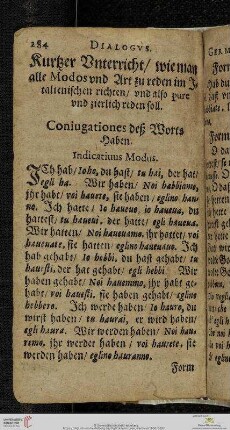 284 DIALOGVS.
Kurtzer Vnterricht / wie man
alle Modos vnd Art zu reden im J-
talienischen richten / vnd also pure
vnd zierlich reden soll.
Coniugationes deß Worts
Haben.
Indicatiuus Modus.
JCh hab / Io ho, du hast / tu hai, der hat /
egli ha. Wir haben / Noi habbiamo,
jhr habt / voi hauete, sie haben / eglino han-
no. Jch hatte / Io haueuo, io haueua, du
hattest / tu haueui, der hatte / egli haueua.
Wir hatten / Noi haueuamo, jhr hattet / voi
haueuate, sie hatten / eglino haueuano. Jch
hab gehabt / Io hebbi, du hast gehabt / tu
hauesti, der hat gehabt / egli hebbi. Wir
haben gehabt / Noi hauemmo, jhr habt ge-
habt / voi hauesti, sie haben gehabt / eglino
hebbero. Jch werde haben / Io hauro, du
wirst haben / tu haurai, er wird haben /
egli haura. Wir werden haben / Noi hau-
remo, jhr werdet haben / voi haurete, sie
werden haben / eglino hauranno.
Form